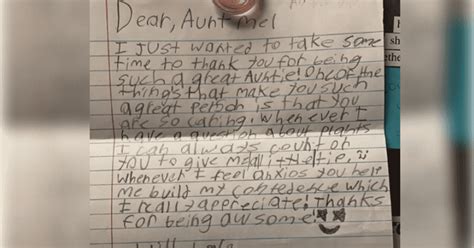 Dear, Aunt mel
I Just wanted to take some
time to thank you for being
such a great Auntie! One of the
things that make you such
a great person is that you
are so caring. Whenever I
have a question about
I can always count on
you to give me a
Whenever I feel anxios you help
me build my confedence which
I really appreciate! Thanks
for being awsome!